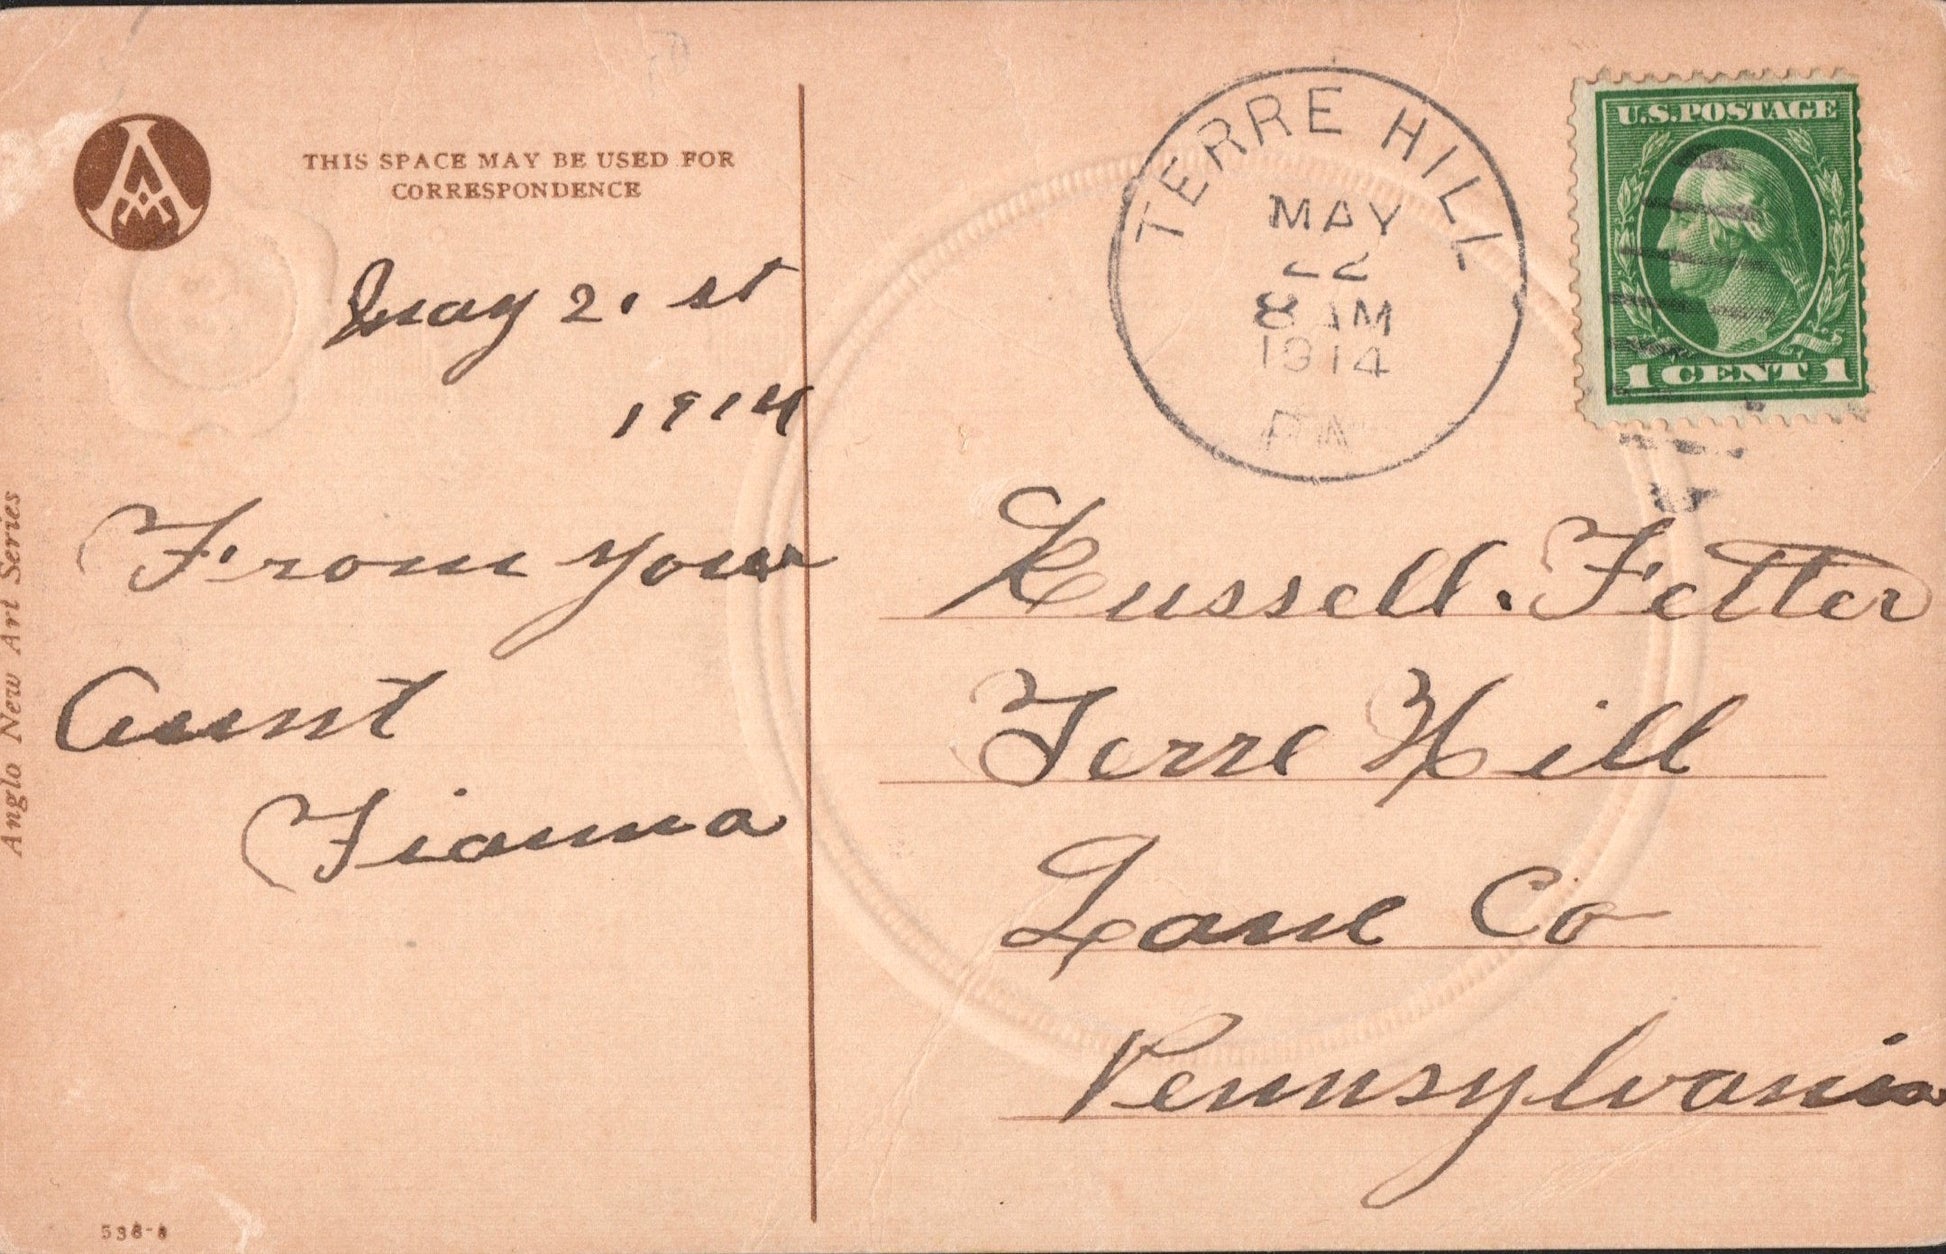 THIS SPACE MAY BE USED FOR
CORRESPONDENCE
May 21 st
1914
From your
Aunt
Fianna
Anglo New Art Series
TERRE HILL
MAY
22
8 AM
1914
PA
U.S. POSTAGE
1 CENT 1
Russell. Fetter
Terre Hill
Lanc Co
Pennsylvania